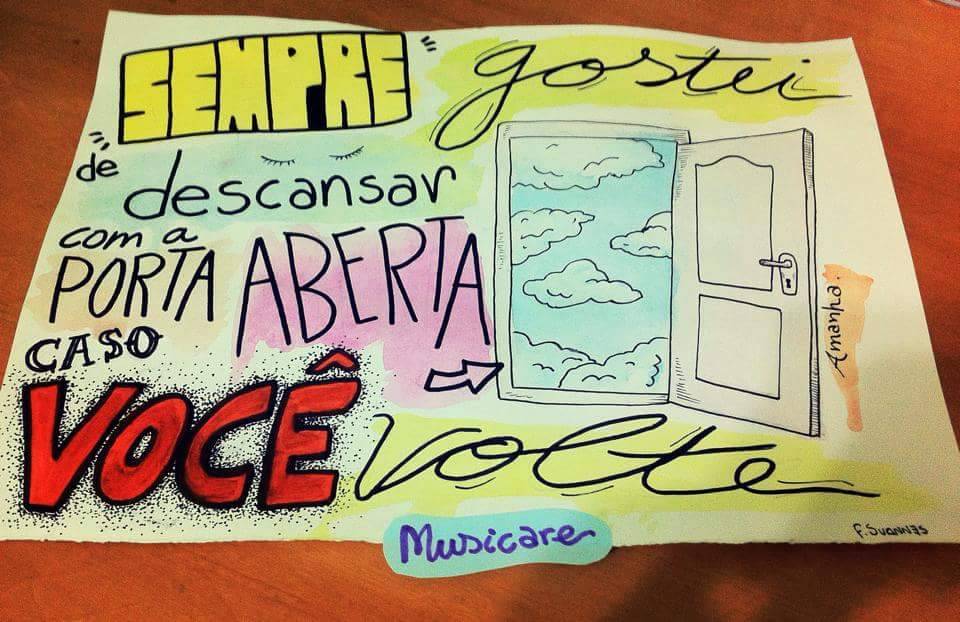 SEMPRE gostei
de descansar
com a
PORTA ABERTA
CASO
VOCÊ volte
Amanha.
Musicare
F. SUANNES